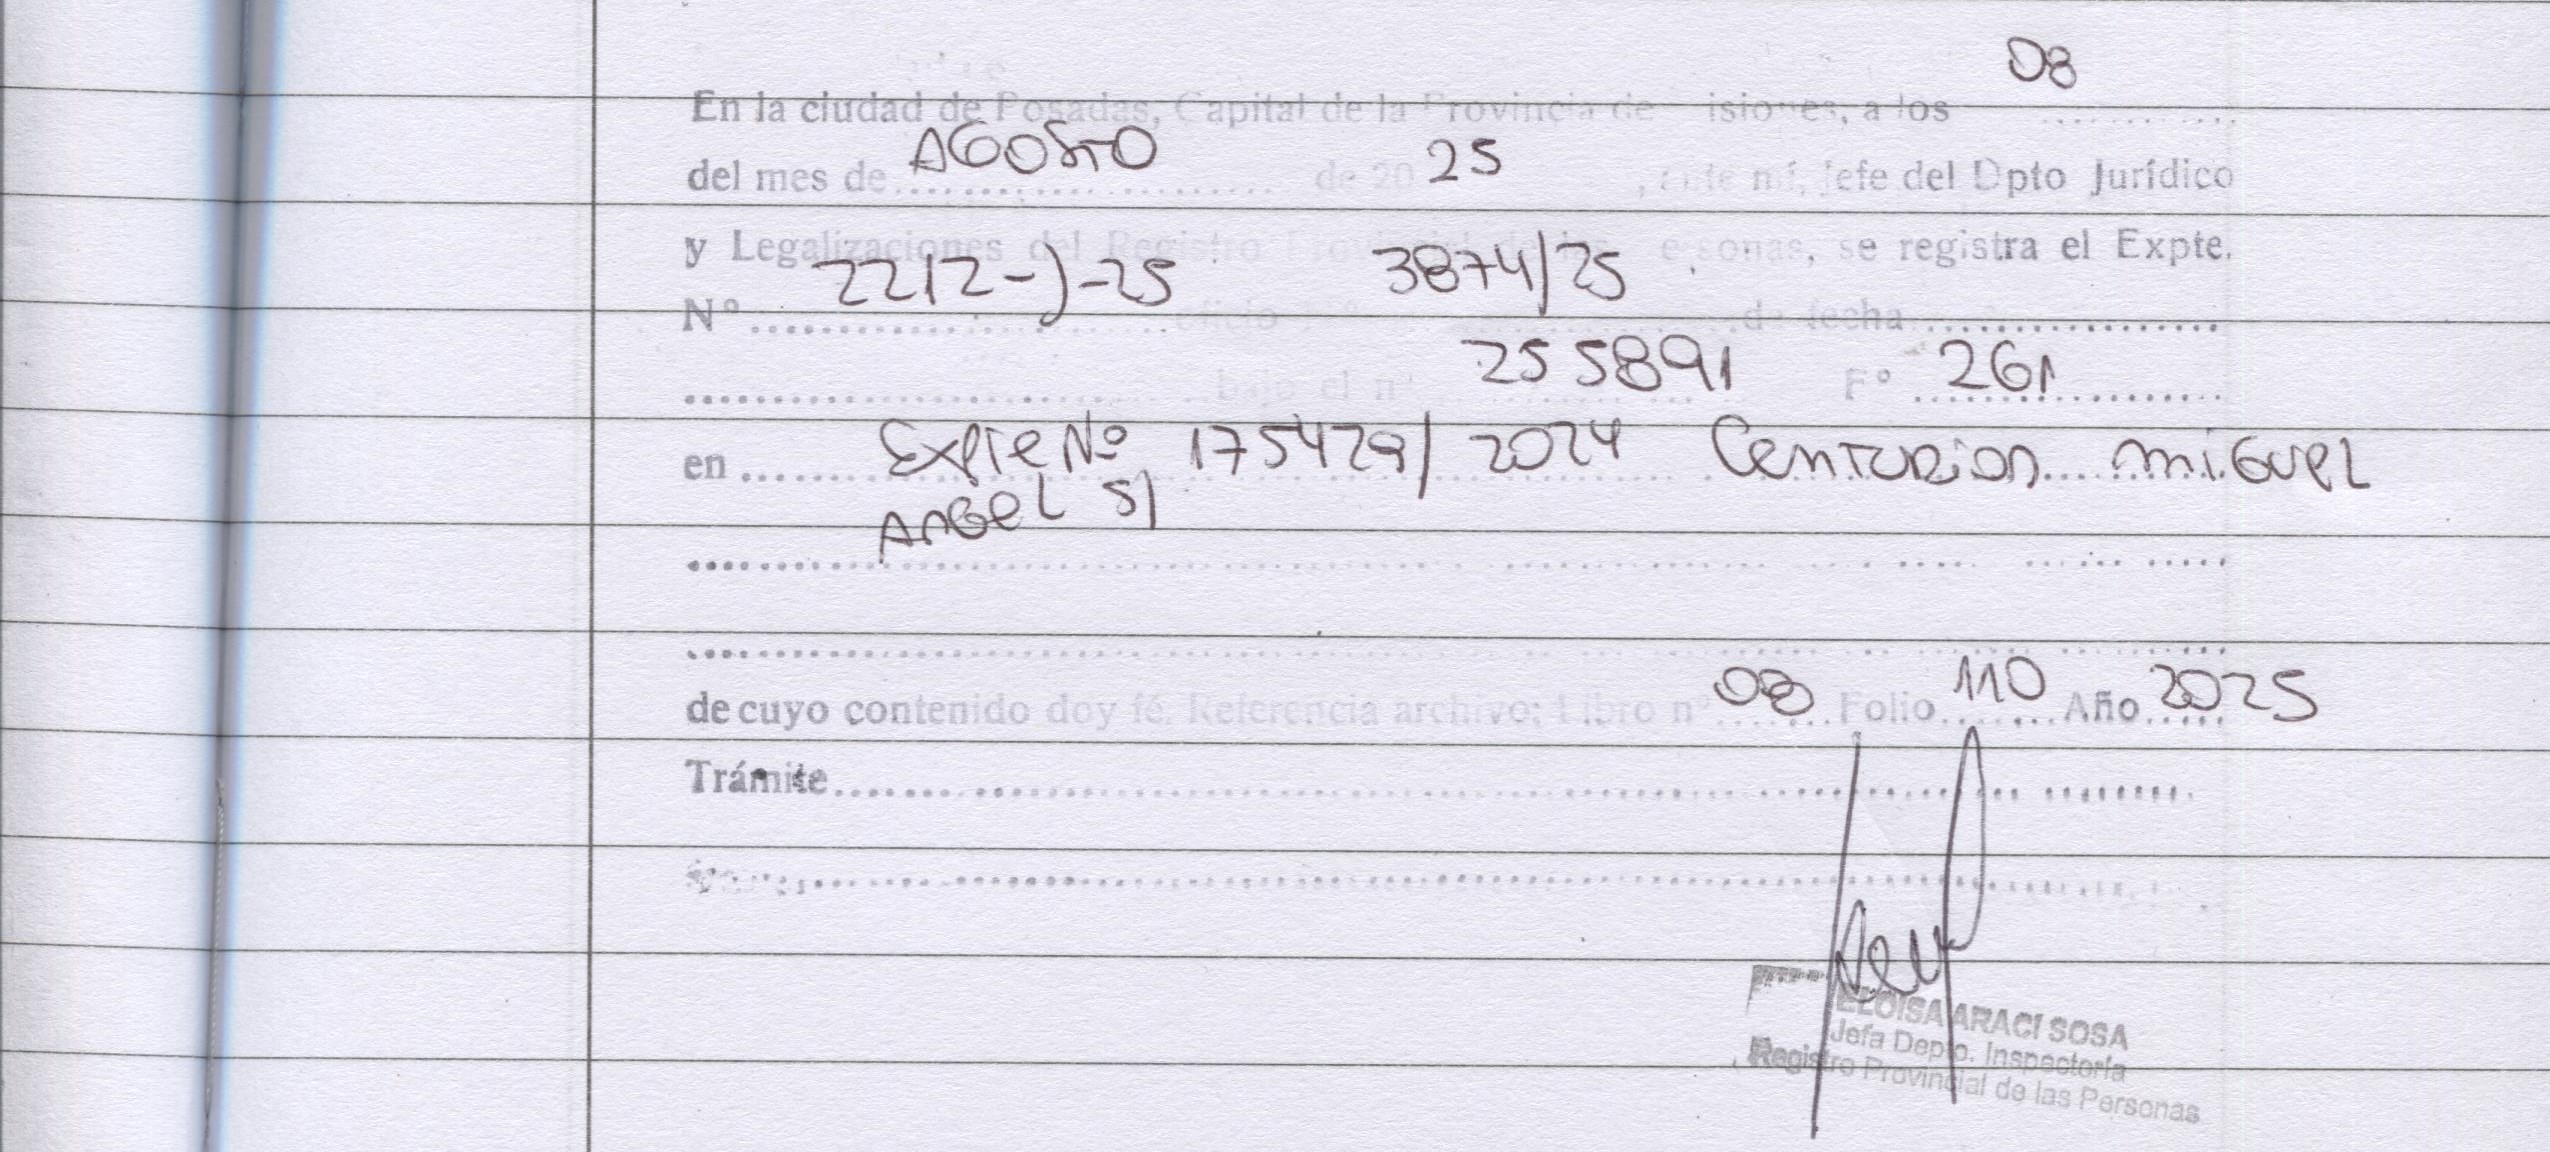 08
En la ciudad de Posadas, Capital de la Provincia de isiones, a los ..........
AGOSTO 25
del mes de .................... de 20 , ante mí, Jefe del Dpto Jurídico
y Legalizaciones del Registro Provincial de las ersonas, se registra el Expte.
2212-J-25 3874/25
N° .................... oficio N° .................... de fecha ....................
255891 261
.................... bajo el n° .................... F° ....................
en .... Expte Nº 175429/2024 Centurion miguel
Angel S/
....................
....................
08 110 2025
de cuyo contenido doy fé. Referencia archivo: Libro n° ....... Folio ....... Año .......
Trámite ....................
ELOISA ARACI SOSA
Jefa Depto. Inspectoría
Registro Provincial de las Personas